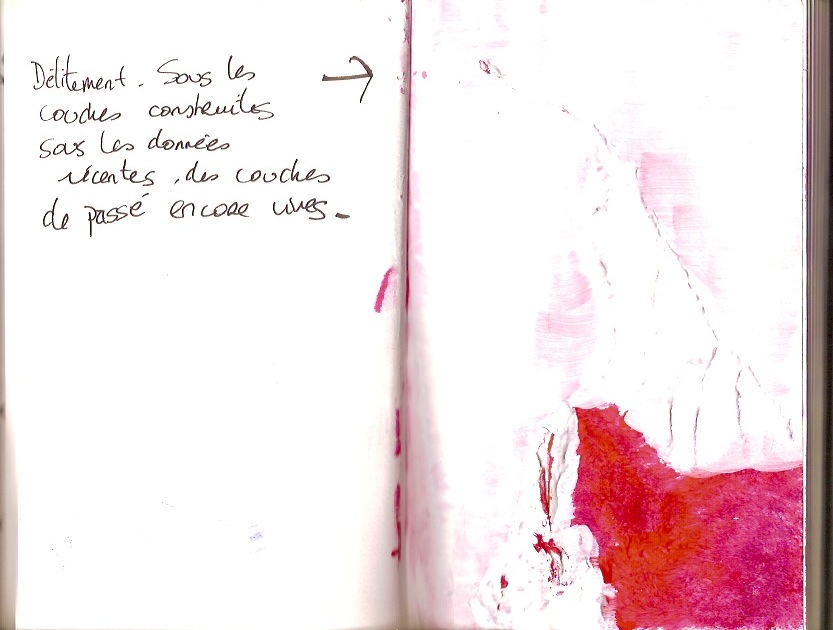 Délitement. Sous les →
couches construites
sous les données
récentes, des couches
de passé encore vives_